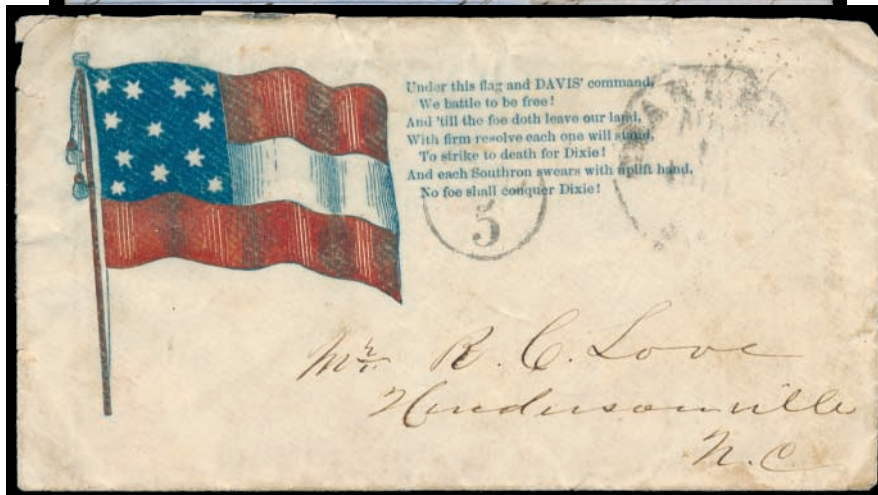 Under this flag and DAVIS' command,
We battle to be free!
And 'till the foe doth leave our land,
With firm resolve each one will stand,
To strike to death for Dixie!
And each Southron swears with uplift hand,
No foe shall conquer Dixie!
5
Mr R. C. Love
Hendersonville
N. C